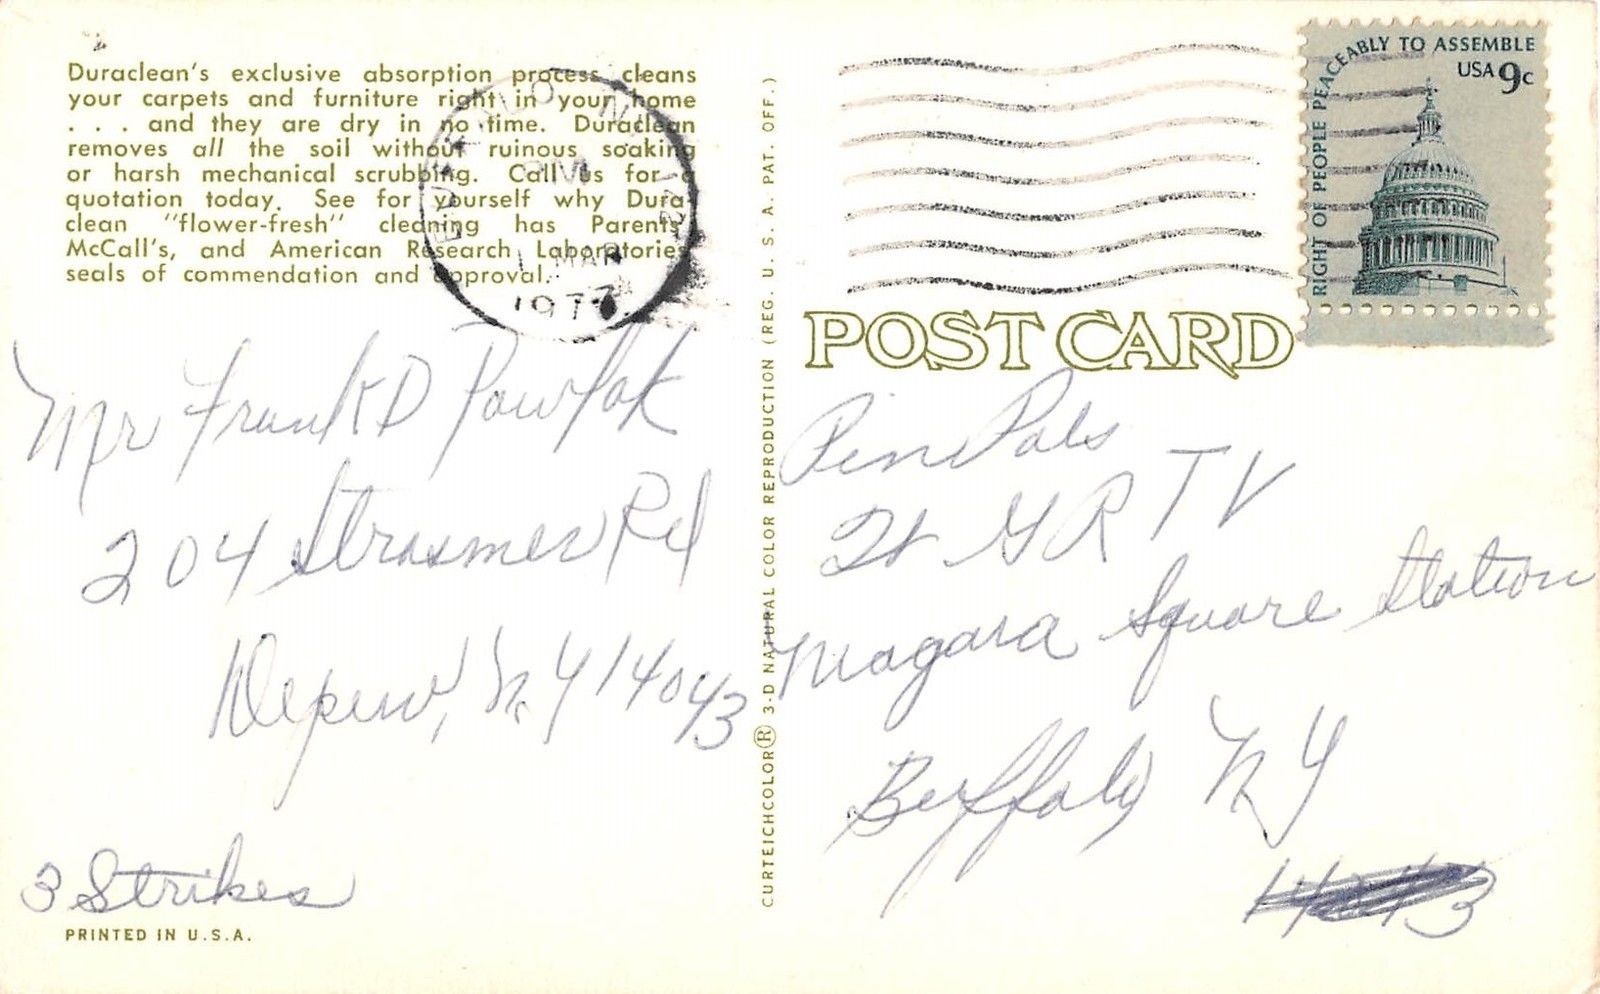 Duraclean's exclusive absorption process cleans
your carpets and furniture right in your home
. . . and they are dry in no time. Duraclean
removes all the soil without ruinous soaking
or harsh mechanical scrubbing. Call us for a
quotation today. See for yourself why Dura-
clean "flower-fresh" cleaning has Parents',
McCall's, and American Research Laboratories
seals of commendation and approval.
BUFFALO, NY 142
PM
1 MAR
1977
RIGHT OF PEOPLE PEACEABLY TO ASSEMBLE
USA 9c
POST CARD
Mr Frank D Pawlak
204 Strasmer Rd
Depew, N.Y 14043
3 Strikes
PRINTED IN U.S.A.
CURTEICHCOLOR® 3-D NATURAL COLOR REPRODUCTION (REG. U. S. A. PAT. OFF.)
Pin Pals
W G R T V
Niagara Square Station
Buffalo, N Y